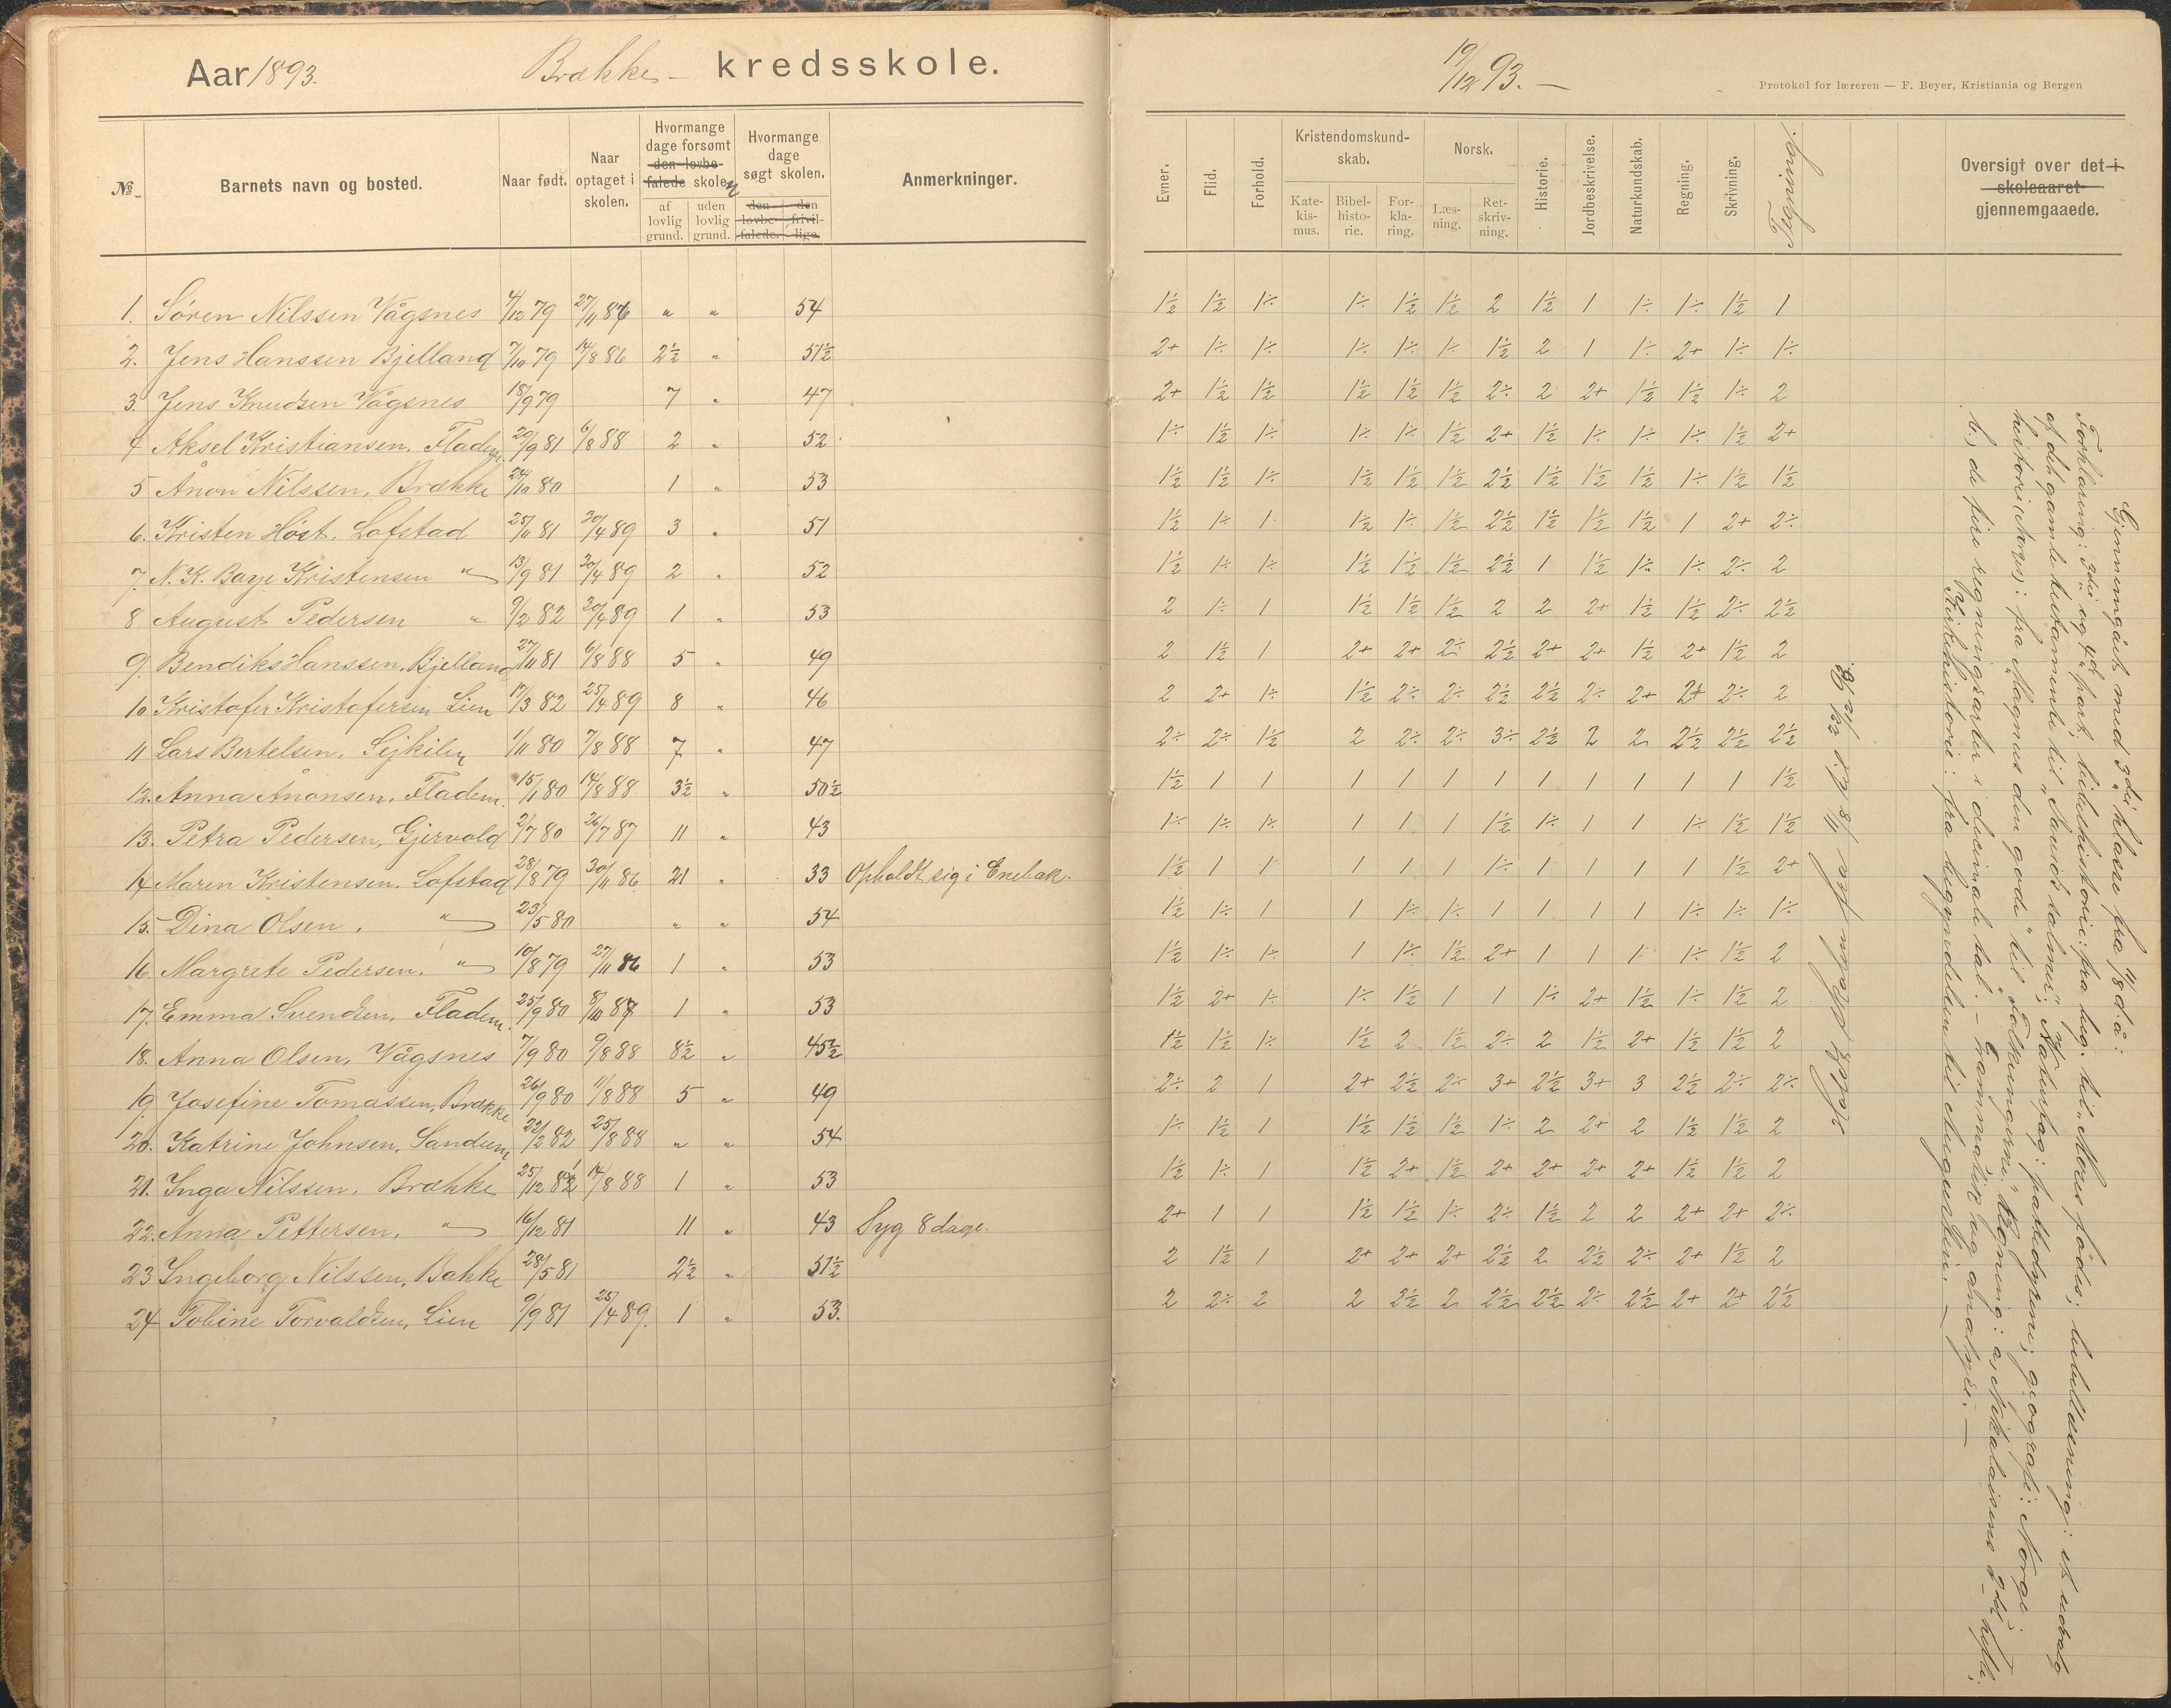 Aar 1893. Brække - kredsskole.
№ Barnets navn og bosted. Naar født. Naar optaget i skolen. Hvormange dage forsømt den lovbefalede skolen af lovlig grund. uden lovlig grund. Hvormange dage søgt skolen. den lovbefalede. den frivillige. Anmerkninger.
1. Søren Nilssen Vågsnes 4/12 79 27/11 86 " " 54
2. Jens Hanssen Bjelland 7/10 79 14/8 86 2½ " 51½
3. Jens Knudsen Vågsnes 18/9 79 7 " 47
4 Aksel Kristiansen, Fladem. 20/9 81 6/8 88 2 " 52
5 Ånon Nilssen, Brække 24/10 80 1 " 53
6. Kristen Höst, Lofstad 25/11 81 30/4 89 3 " 51
7. N. K. Baye Kristensen " 13/9 81 30/4 89 2 " 52
8 August Pedersen " 9/2 82 30/4 89 1 " 53
9. Bendiks Hanssen, Bjelland 27/11 81 6/8 88 5 " 49
10 Kristofer Kristofersen Lien 17/3 82 25/4 89 8 " 46
11 Lars Bertelsen, Sejkilen 1/11 80 7/8 88 7 " 47
12. Anna Ånonsen, Fladem. 15/1 80 14/8 88 3½ " 50½
13. Petra Pedersen, Gjervold 2/7 80 26/7 87 11 " 43
14 Maren Kristensen, Lofstad 28/8 79 30/11 86 21 " 33 Opholdt sig i Enebak.
15. Dina Olsen, " 23/5 80 " " 54
16. Margrete Pedersen, " 10/8 79 27/11 86 1 " 53
17. Emma Svendsen, Fladem. 25/9 80 8/10 87 1 " 53
18. Anna Olsen, Vågsnes 7/9 80 9/8 88 8½ " 45½
19. Josefine Tomassen, Brække 26/9 80 11/8 88 5 " 49
20. Katrine Johnsen, Sandum 22/2 82 25/8 88 " " 54
21. Inga Nilssen, Brække 25/12 81 14/8 88 1 " 53
22. Anna Pettersen, " 16/12 81 11 " 43 Syg 8 dage.
23 Ingeborg Nilssen, Bakke 28/5 81 2½ " 51½
24 Tobine Torvaldsen, Lien 9/9 81 25/4 89. 1 " 53.
19/12 93. —
Protokol for læreren — F. Beyer, Kristiania og Bergen
Evner. Flid. Forhold. Kristendomskundskab. Katekismus. Bibelhistorie. Forklaring. Norsk. Læsning. Retskrivning. Historie. Jordbeskrivelse. Naturkundskab. Regning. Skrivning. Tegning. Oversigt over det i skoleaaret gjennemgaaede.
1½ 1½ 1÷ 1÷ 1½ 1½ 2 1½ 1 1÷ 1÷ 1½ 1
2+ 1÷ 1÷ 1÷ 1÷ 1÷ 1½ 2 1 1÷ 2+ 1÷ 1÷
2+ 1½ 1½ 1½ 1½ 1½ 2÷ 2 2+ 1½ 1½ 1÷ 2
1÷ 1½ 1÷ 1÷ 1÷ 1½ 2+ 1½ 1÷ 1÷ 1÷ 1½ 2+
1½ 1½ 1÷ 1½ 1½ 1½ 2½ 1½ 1½ 1½ 1÷ 1½ 1½
1½ 1÷ 1 1½ 1÷ 1½ 2½ 1½ 1½ 1½ 1 2+ 2÷
1½ 1÷ 1÷ 1½ 1½ 1½ 2½ 1 1½ 1÷ 1÷ 2÷ 2
2 1÷ 1 1½ 1½ 1½ 2 2 2+ 1½ 1½ 2÷ 2½
2 1½ 1 2+ 2+ 2÷ 2½ 2+ 2+ 1½ 2+ 1½ 2
2 2+ 1÷ 1½ 2÷ 2÷ 2½ 2½ 2÷ 2+ 2+ 2÷ 2
2÷ 2÷ 1½ 2 2÷ 2÷ 3÷ 2½ 2 2 2½ 2½ 2½
1½ 1 1 1 1 1 1 1 1 1 1 1 1½
1÷ 1÷ 1÷ 1 1 1 1½ 1÷ 1 1 1÷ 1½ 1½
1½ 1 1 1 1 1 1÷ 1 1 1 1 1½ 2+
1½ 1÷ 1 1 1÷ 1÷ 1 1 1 1 1÷ 1÷ 1÷
1½ 1÷ 1÷ 1 1÷ 1½ 2+ 1 1 1÷ 1÷ 1½ 2
1½ 2+ 1÷ 1÷ 1½ 1 1 1÷ 2+ 1½ 1÷ 1½ 2
1½ 1½ 1÷ 1½ 2 1½ 2÷ 2 1½ 2+ 1½ 1½ 2
2÷ 2 1 2+ 2½ 2÷ 3+ 2½ 3+ 3 2½ 2÷ 2÷
1÷ 1½ 1 1½ 1½ 1½ 1÷ 2 2+ 2 1½ 1½ 2
1½ 1÷ 1 1½ 2+ 1½ 2+ 2+ 2+ 2+ 1½ 1½ 2
2+ 1 1 1½ 1½ 1÷ 2÷ 1½ 2 2 2+ 2+ 2÷
2 1½ 1 2+ 2+ 2+ 2½ 2 2½ 2÷ 2+ 1½ 2
2 2÷ 2 2 2½ 2 2½ 2½ 2÷ 2½ 2+ 2+ 2½
Gjennemgåt med 3die klasse fra 11/8 d. å:
Forklaring: 3die og 4de part; bibelhistorie: fra beg. til "Moses fødes; bibellæsning: et udvalg
af det gamle testamente til "Davids salmer"; Naturfag: pattedyrene; geografi: Norge;
historie (Norges): fra "Magnus den gode" til "Folkungerne." Regning: a, Nikolaisens 2det hefte;
b, de fire regningsarter i decimale tal. — Grammatik og analyse. —
Kirkehistorie: fra begyndelsen til Augustin. —
Holdt skolen fra 11/8 til 22/12 93.